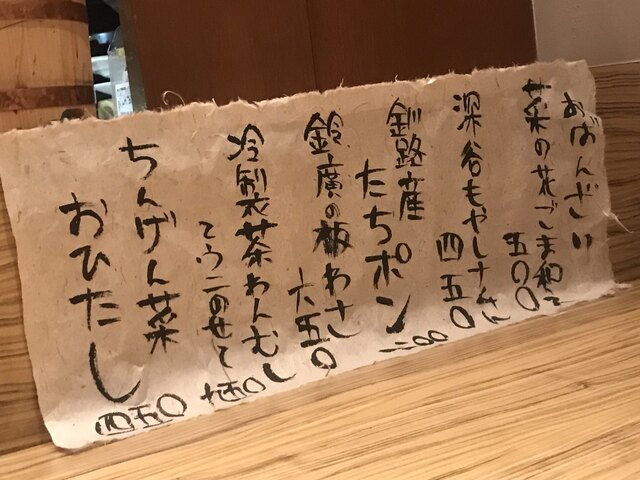 おばんざい
菜の花ごま和え
五〇〇
深谷もやしナムル
四五〇
釧路産
たちポン
鈴廣の板わさ
六五〇
冷製茶わんむし
〜ウニのせて
七五〇
ちんげん菜
おひたし
四五〇